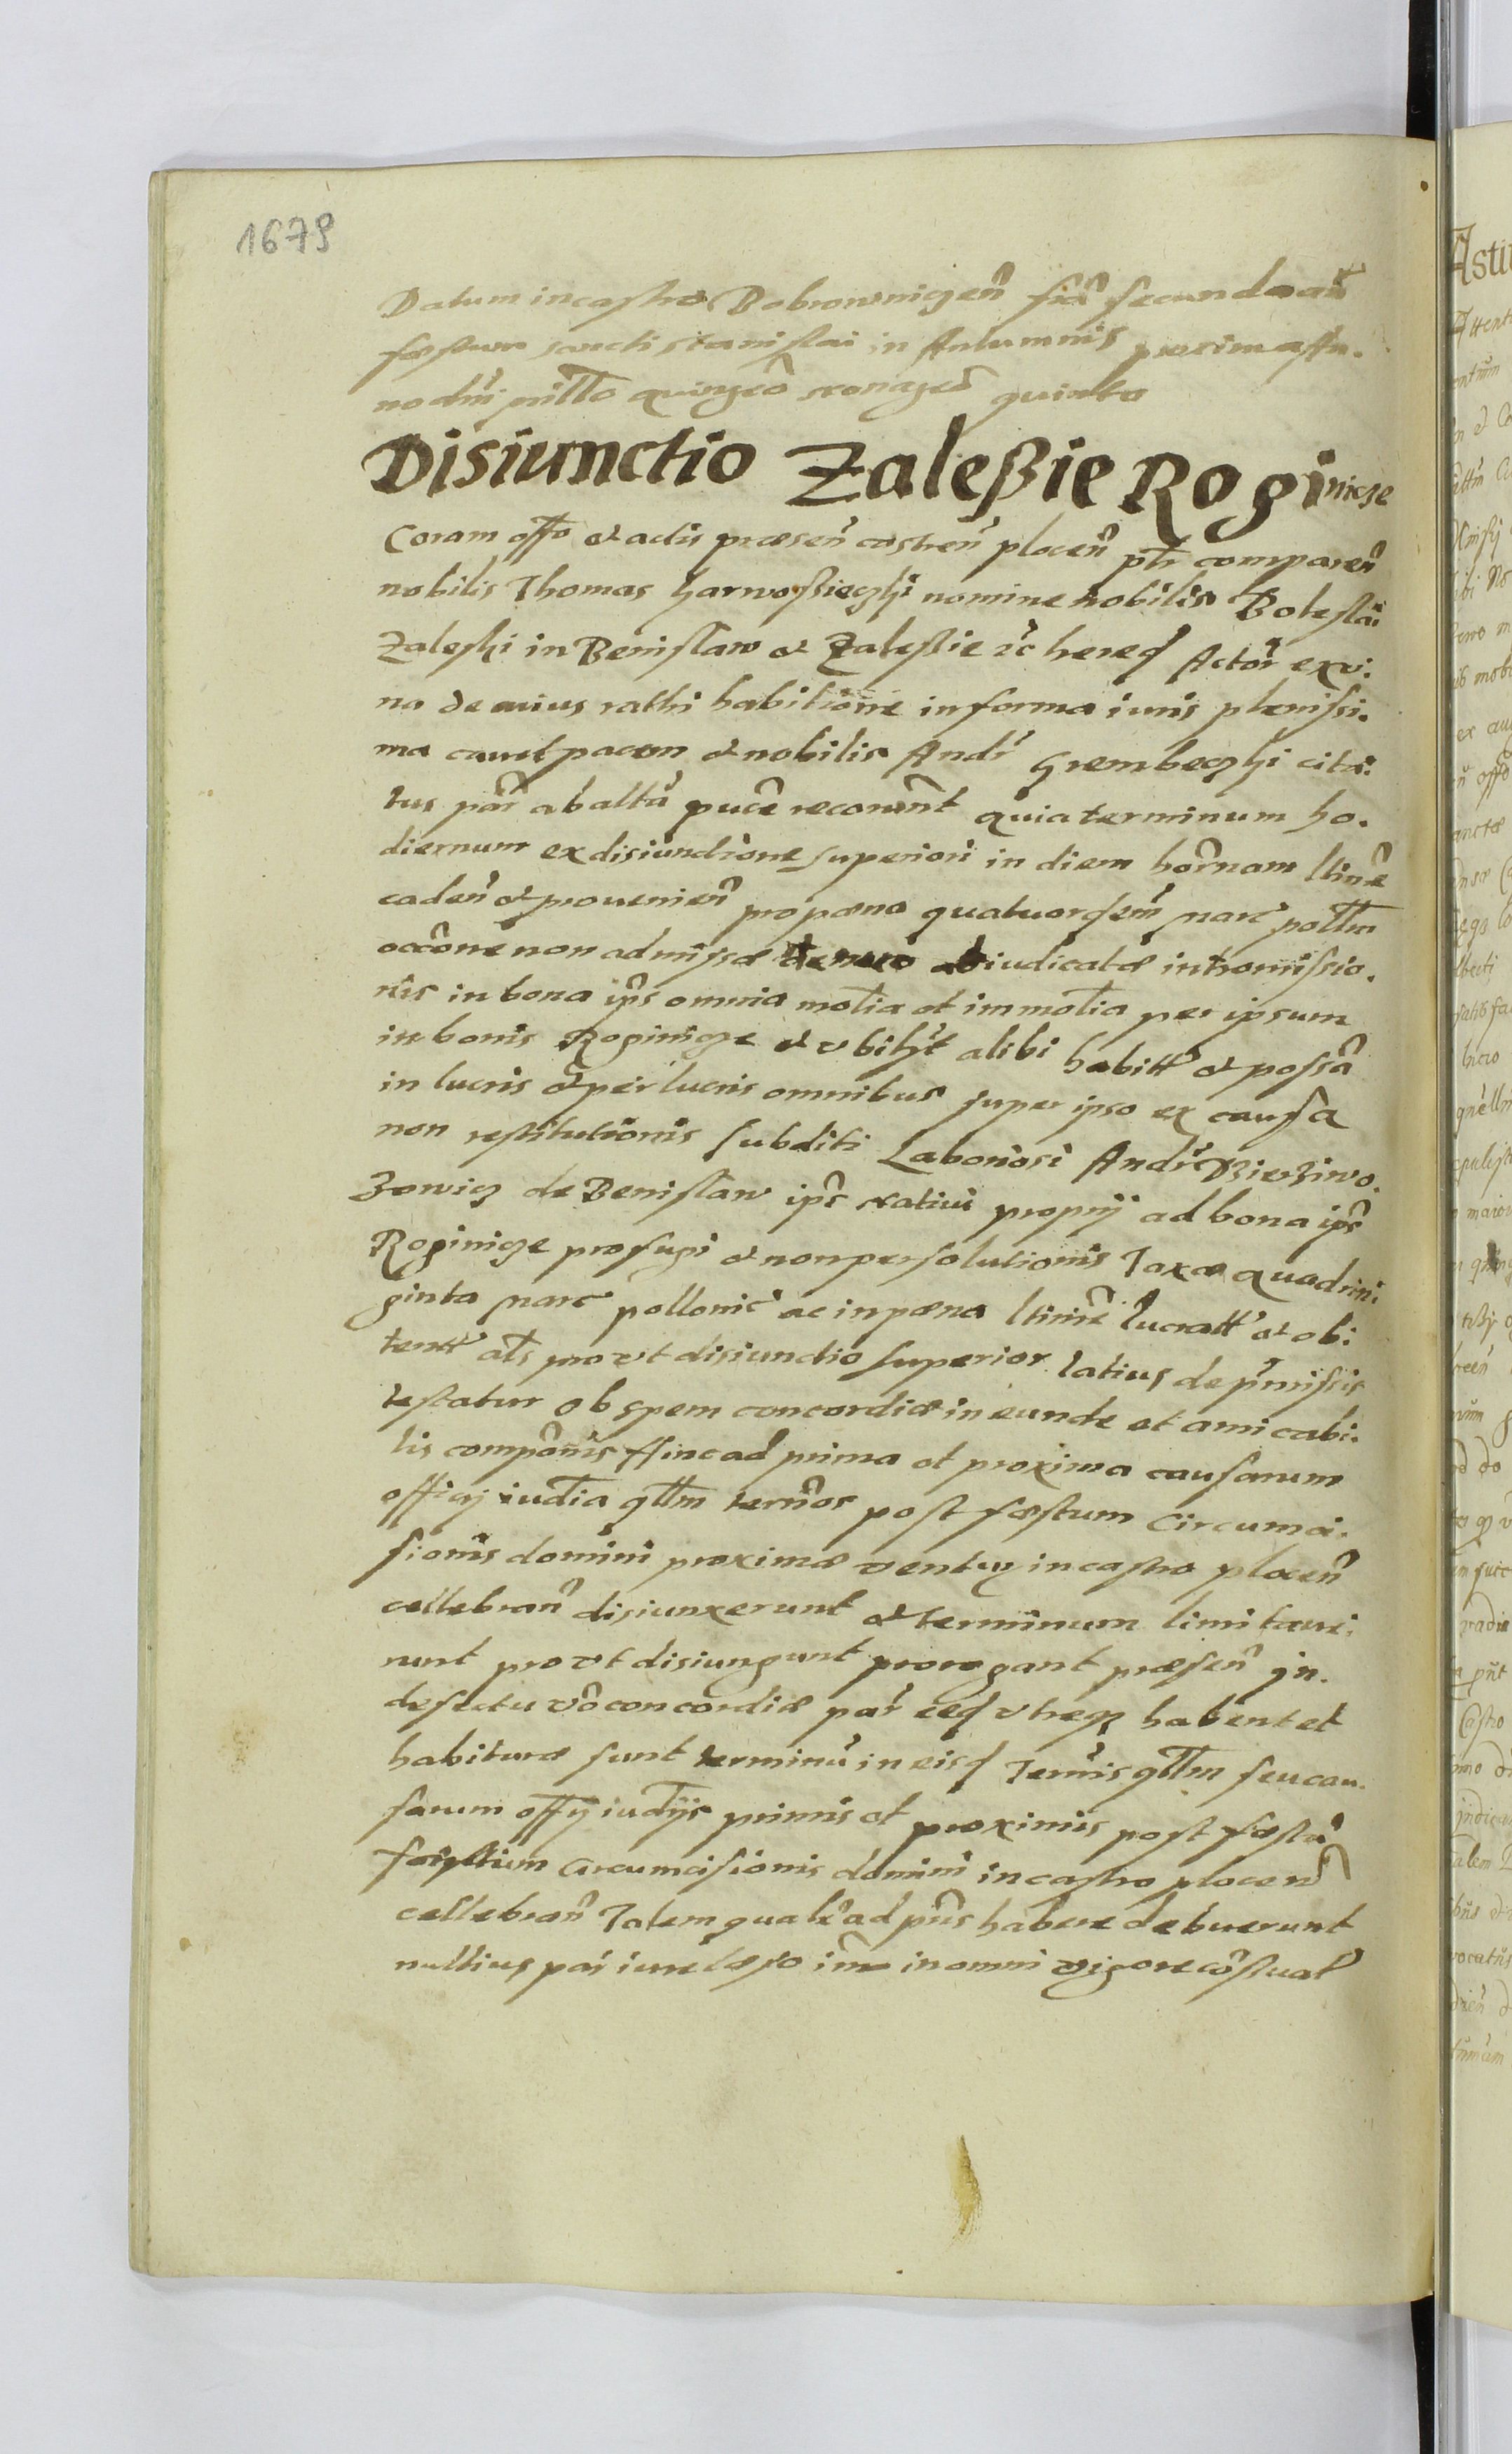 1679
Datum in castro Bobrowniczeñ feria secunda añ
fęstum sancti stanislai in Autumnis proxima An.
no dñi millo quingeō nonageō quinto
Disiunctio Zaleßie Roginicze
Coram offo et actis præseñ castreñploceñ ptr compareñ
nobilis Thomas Harwoßieczki nomine nobilis Boleslai
Zaleski in Benislaw et Zaleßie rc hered Actor ex vi:
na de cuius rathi habitione in forma iuris plenissi.
ma cavet pacem et nobilis Andr Grembeczki cita:
tus par ab altā puce recoverūt quia terminum ho.
diernum ex disiunctione superiori in diem hornam ltime
cadeñ et provenieñ pro pæna quatuordem marc pollm
occone non admissæ denuo abiudicatæ intromissio.
nis in bona ips omnia motia et immotia per ipsum
in bonis Roginicze et vbihet alibi habitt et possa
in lucris et perlucris omnibus super ipso ex causa
non restitutionis subditi Laboriosi Andr
Zowicz de Benislaw ips nativi proprij ad bona ips
Roginicze profugi et non persolutionis Taxæ quadrin:
ginta marc pollonic ac in pæna ltime lucratt et obi:
tentt als pro vt disiunctio superior latius de pmissis
testatur Ob spem concordiæ in eunde et amicabi.
lis componis Hinc ad prima et proxima causarum
officij iudia qllm termos post fęstum Circumci.
sionis domini proximæ ventur in castro ploceñ
cellebrañ disiunxerunt et terminum limitave:
runt pro vt disiungunt prorogant præseñ In.
defectu vō concordiæ par eed vtræq habent et
habituræ sunt terminū in eisd Termis qllm seu cau.
sarum offij iudijs primis et proximis post fęstū
fęstum Circumcisionis domini in castro ploceñ
cellebrañ Talem qualē ad pñs habere debuerunt
nullius par iure læso imo in omni vigore cōsuat